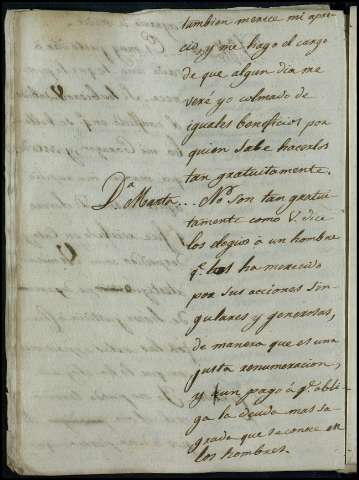 tambien merece mi apre
cio, y me hago el cargo
de que algun dia me
veré yo colmado de
iguales beneficios por
quien sabe hacerlos
tan gratuitamente.
D.ª Marta... No son tan gratui
tamente como V. dice
los elogios á un hombre
q.e los ha merecido
por sus acciones sin
gulares y generosas,
de manera que es una
justa renumeracion,
y un pago á q.e obli
ga la deuda mas sa
grada que se conoce en
los hombres.